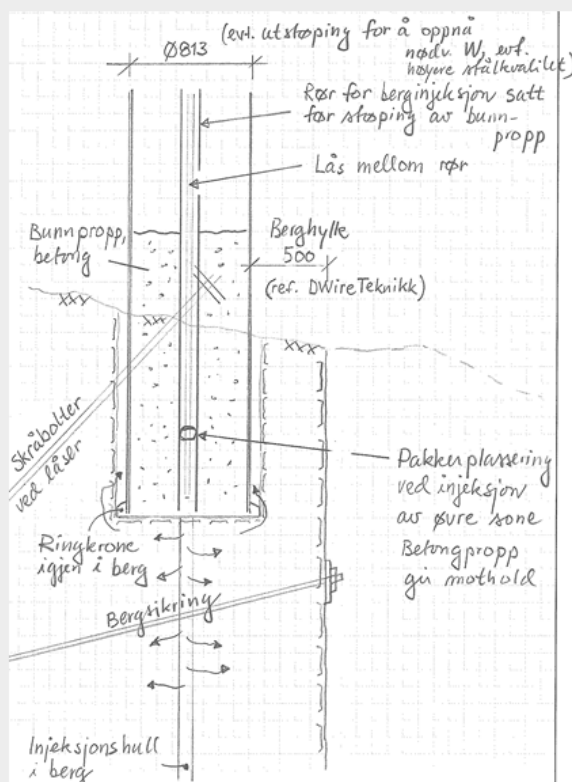 Ø813
(evt. utstøping for å oppnå
nødv. W, evt.
høyere stålkvalitet)
Rør for berginjeksjon satt
før støping av bunn-
propp
Lås mellom rør
Bunnpropp,
betong
Berghylle
500
(ref. DWireTeknikk)
xxx
xxx
xxx
Skråbolter
ved låser
Pakkerplassering
ved injeksjon
av øvre sone
Betongpropp
gir mothold
Ringkrone
igjen i berg
Bergsikring
Injeksjonshull
i berg